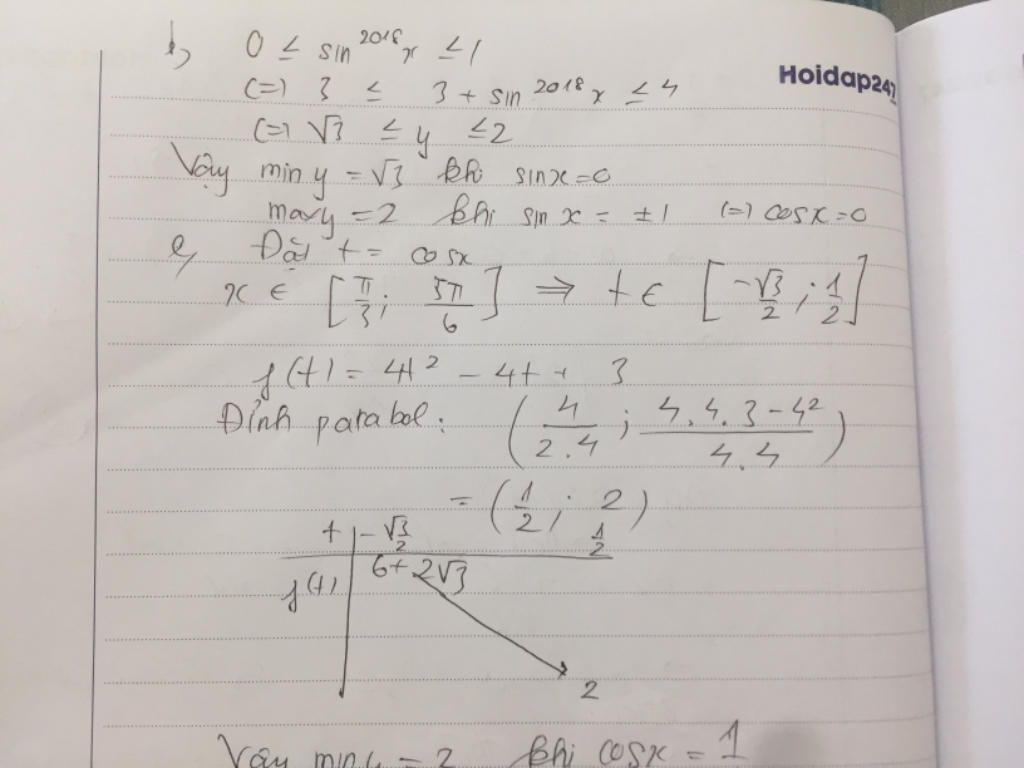 b, 0 ≤ sin^2018 x ≤ 1
Hoidap247
(=) 3 ≤ 3 + sin^2018 x ≤ 4
(=) √3 ≤ y ≤ 2
Vậy min y = √3 khi sinx = 0
max y = 2 khi sin x = ±1 (=) cosx = 0
e, Đặt t = cosx
x ∈ [π/3; 5π/6] ⇒ t ∈ [-√3/2; 1/2]
f(t) = 4t² - 4t + 3
Đỉnh parabol: (4/2.4; 4.4.3 - 4²/4.4)
= (1/2; 2)
t -√3/2 1/2
f(t) 6 + 2√3
2
Vậy min y = 2 khi cosx = 1